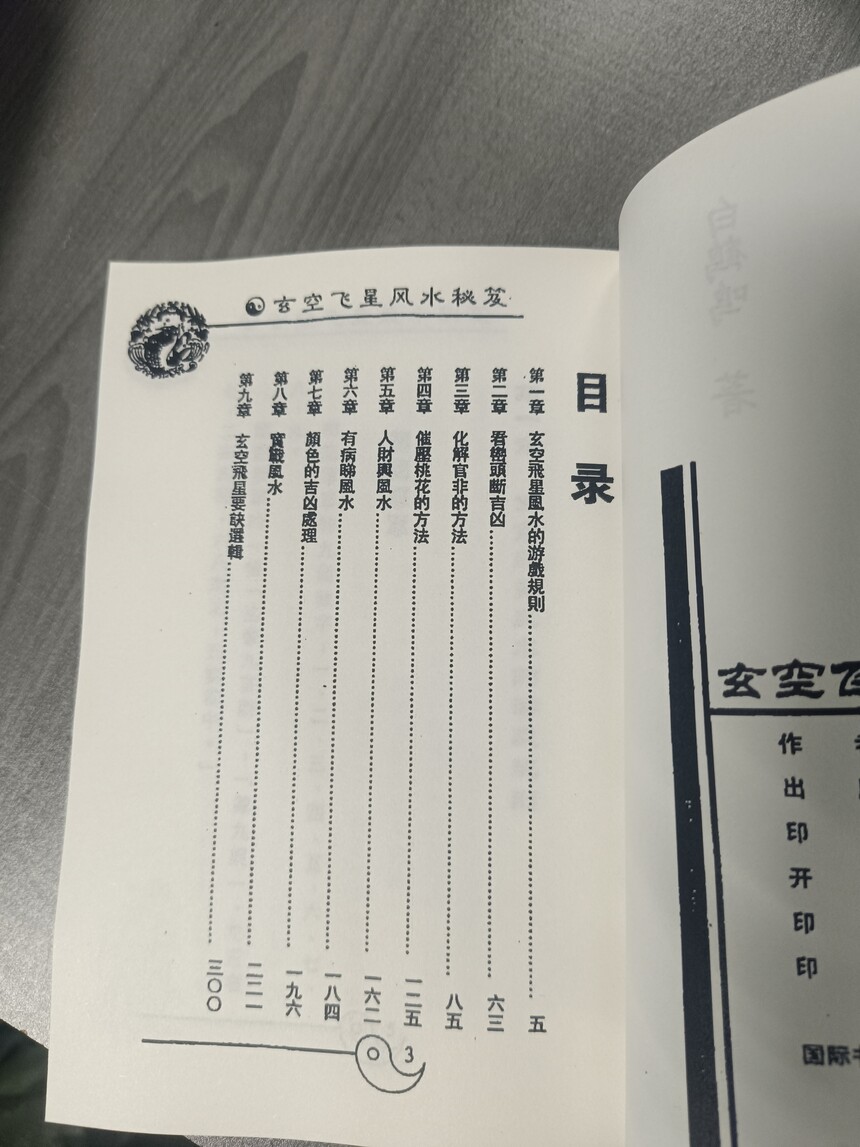 玄空飞星风水秘笈
目录
第一章 玄空飛星風水的游戲規則……五
第二章 看巒頭斷吉凶……六三
第三章 化解官非的方法……八五
第四章 催壓桃花的方法……一二五
第五章 人財興風水……一六二
第六章 有病睇風水……一八四
第七章 顏色的吉凶處理……一九六
第八章 實戰風水……二二一
第九章 玄空飛星要訣選輯……三〇〇
3
白鶴鳴 著
玄空飞
作
出
印
开
印
印
国际书